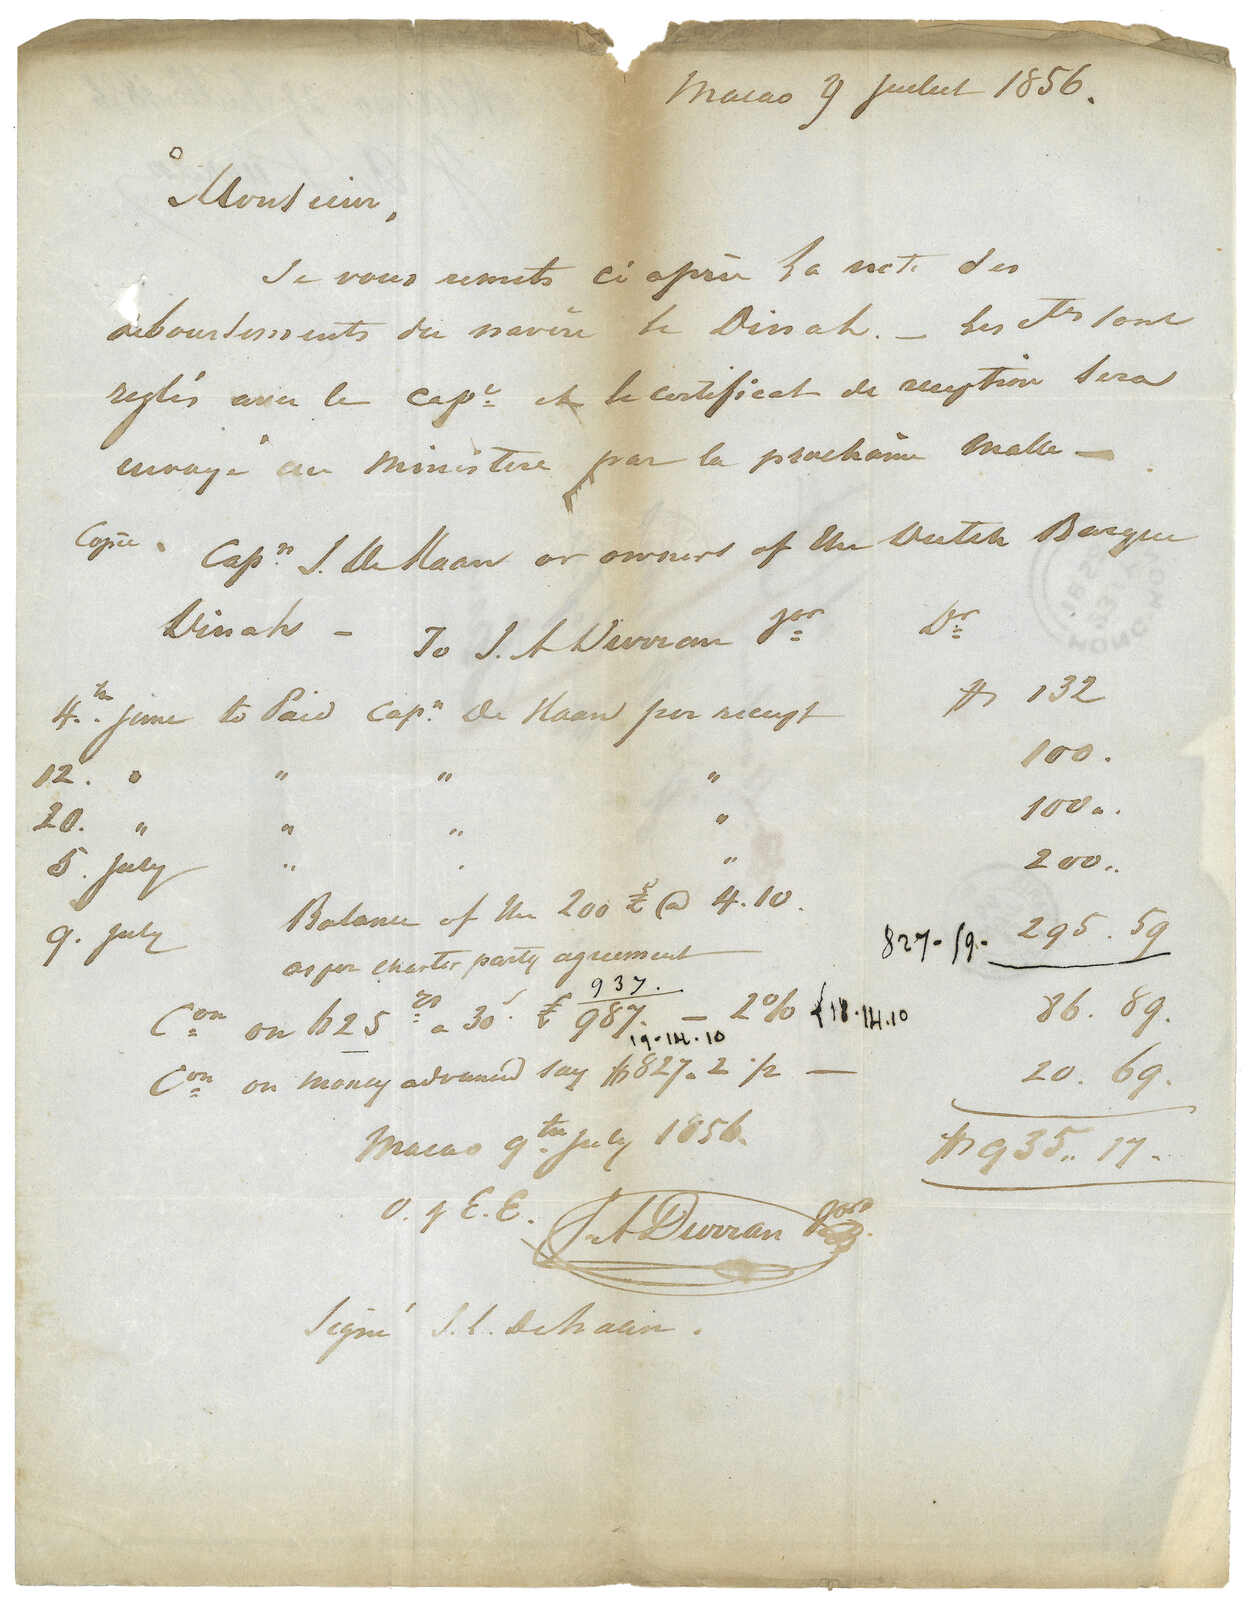 Macao 9 Juillet 1856.
Monsieur,
Je vous remets ci après la note des
deboursements du navire le Dinah. — Les Ctes sont
reglés avec le Cape et le certificat de reception sera
envoyé au ministere par la prochaine malle —
Copie. Capn J. De Haan or owners of the Dutch Barque
Dinah — To J. A Durran Jor Dr
4th june to Paid Capn De Haan per receipt $ 132
12. " " " " 100.
20. " " " " 100 ..
5. July " " " 200..
9. July Balance of the 200 £ @ 4.10. 827-59- 295.59
as per charter party agreement
937.
Con on 625 a 30s £ 987. — 2% £18.14.10 86.89.
19-14.10
Con on money advanced say $827. 2 % — 20.69.
Macao 9th July 1856. $ 935.. 17.
E. E. J. A Durran Jor
Signé J. C. De Haan.